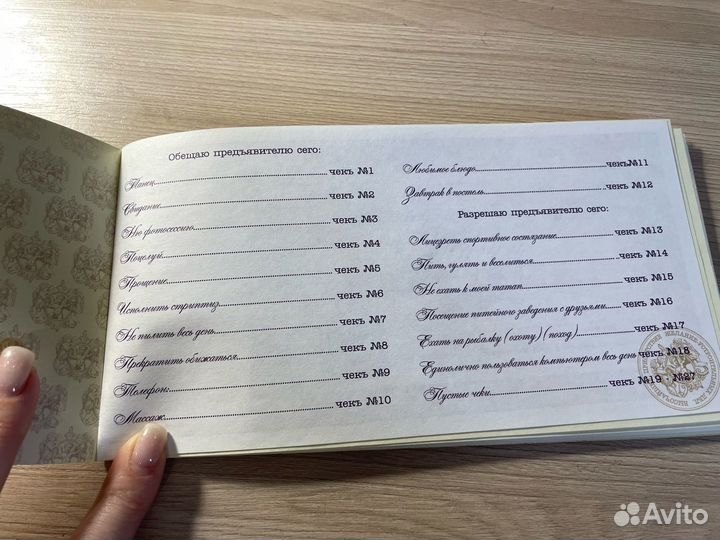 Обещаю предъявителю сего:
Танец чекъ №1
Свидание чекъ №2
Ню фотосессию чекъ №3
Поцелуй чекъ №4
Прощение чекъ №5
Исполнить стриптиз чекъ №6
Не пилить весь день чекъ №7
Прекратить обижаться чекъ №8
Телефон: чекъ №9
Массаж чекъ №10
Любимое блюдо чекъ№11
Завтрак в постель чекъ №12
Разрешаю предъявителю сего:
Лицезреть спортивное состязание чекъ №13
Пить, гулять и веселиться чекъ №14
Не ехать к моей maman чекъ №15
Посещение питейного заведения с друзьями чекъ №16
Ехать на рыбалку (охоту) (поход) чекъ №17
Единолично пользоваться компьютером весь день чекъ №18
Пустые чеки чекъ №19 - №27
Avito